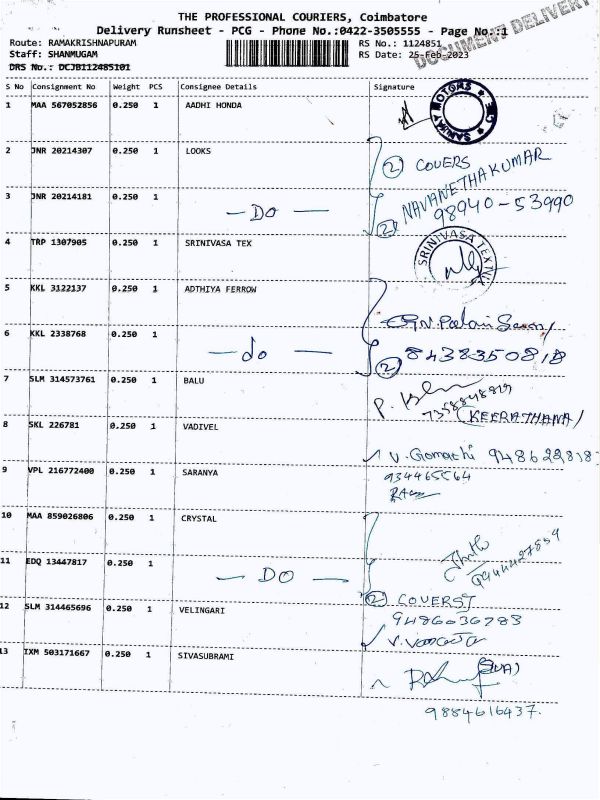 THE PROFESSIONAL COURIERS, Coimbatore
Delivery Runsheet - PCG - Phone No.:0422-3505555 - Page No.:1
DOCUMENT DELIVERY
Route: RAMAKRISHNAPURAM
RS No.: 1124851
Staff: SHANMUGAM
RS Date: 25-Feb-2023
DRS No.: DCJB112485101
S No Consignment No Weight PCS Consignee Details Signature
1 MAA 567052856 0.250 1 AADHI HONDA
SANJAY MOTORS CBE
2 JNR 20214307 0.250 1 LOOKS
2 COVERS
NAVANETHAKUMAR
3 JNR 20214181 0.250 1 — DO —
2 98940-53990
4 TRP 1307905 0.250 1 SRINIVASA TEX
SRINIVASA TEX
5 KKL 3122137 0.250 1 ADTHIYA FERROW
6 KKL 2338768 0.250 1 — do —
2 8438350818
7 SLM 314573761 0.250 1 BALU
7358848819
(KEERATHANA)
8 SKL 226781 0.250 1 VADIVEL
V. Gomathi 948622818
9 VPL 216772400 0.250 1 SARANYA
934465564
10 MAA 859026806 0.250 1 CRYSTAL
9944427859
11 EDQ 13447817 0.250 1 — DO —
2 COVERS
12 SLM 314465696 0.250 1 VELINGARI
9486036783
13 IXM 503171667 0.250 1 SIVASUBRAMI
9884616437.